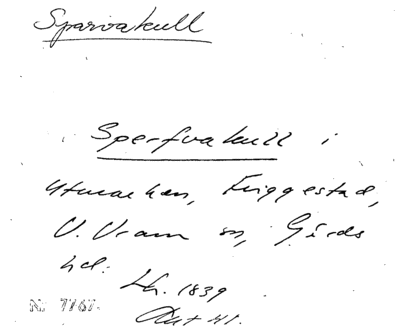 Sparvakull
Sperfvakull i
Utmarken, Friggestad,
V. Vram sn, Gärds
hd.
Lh. 1839
Akt 41.
N: 7767